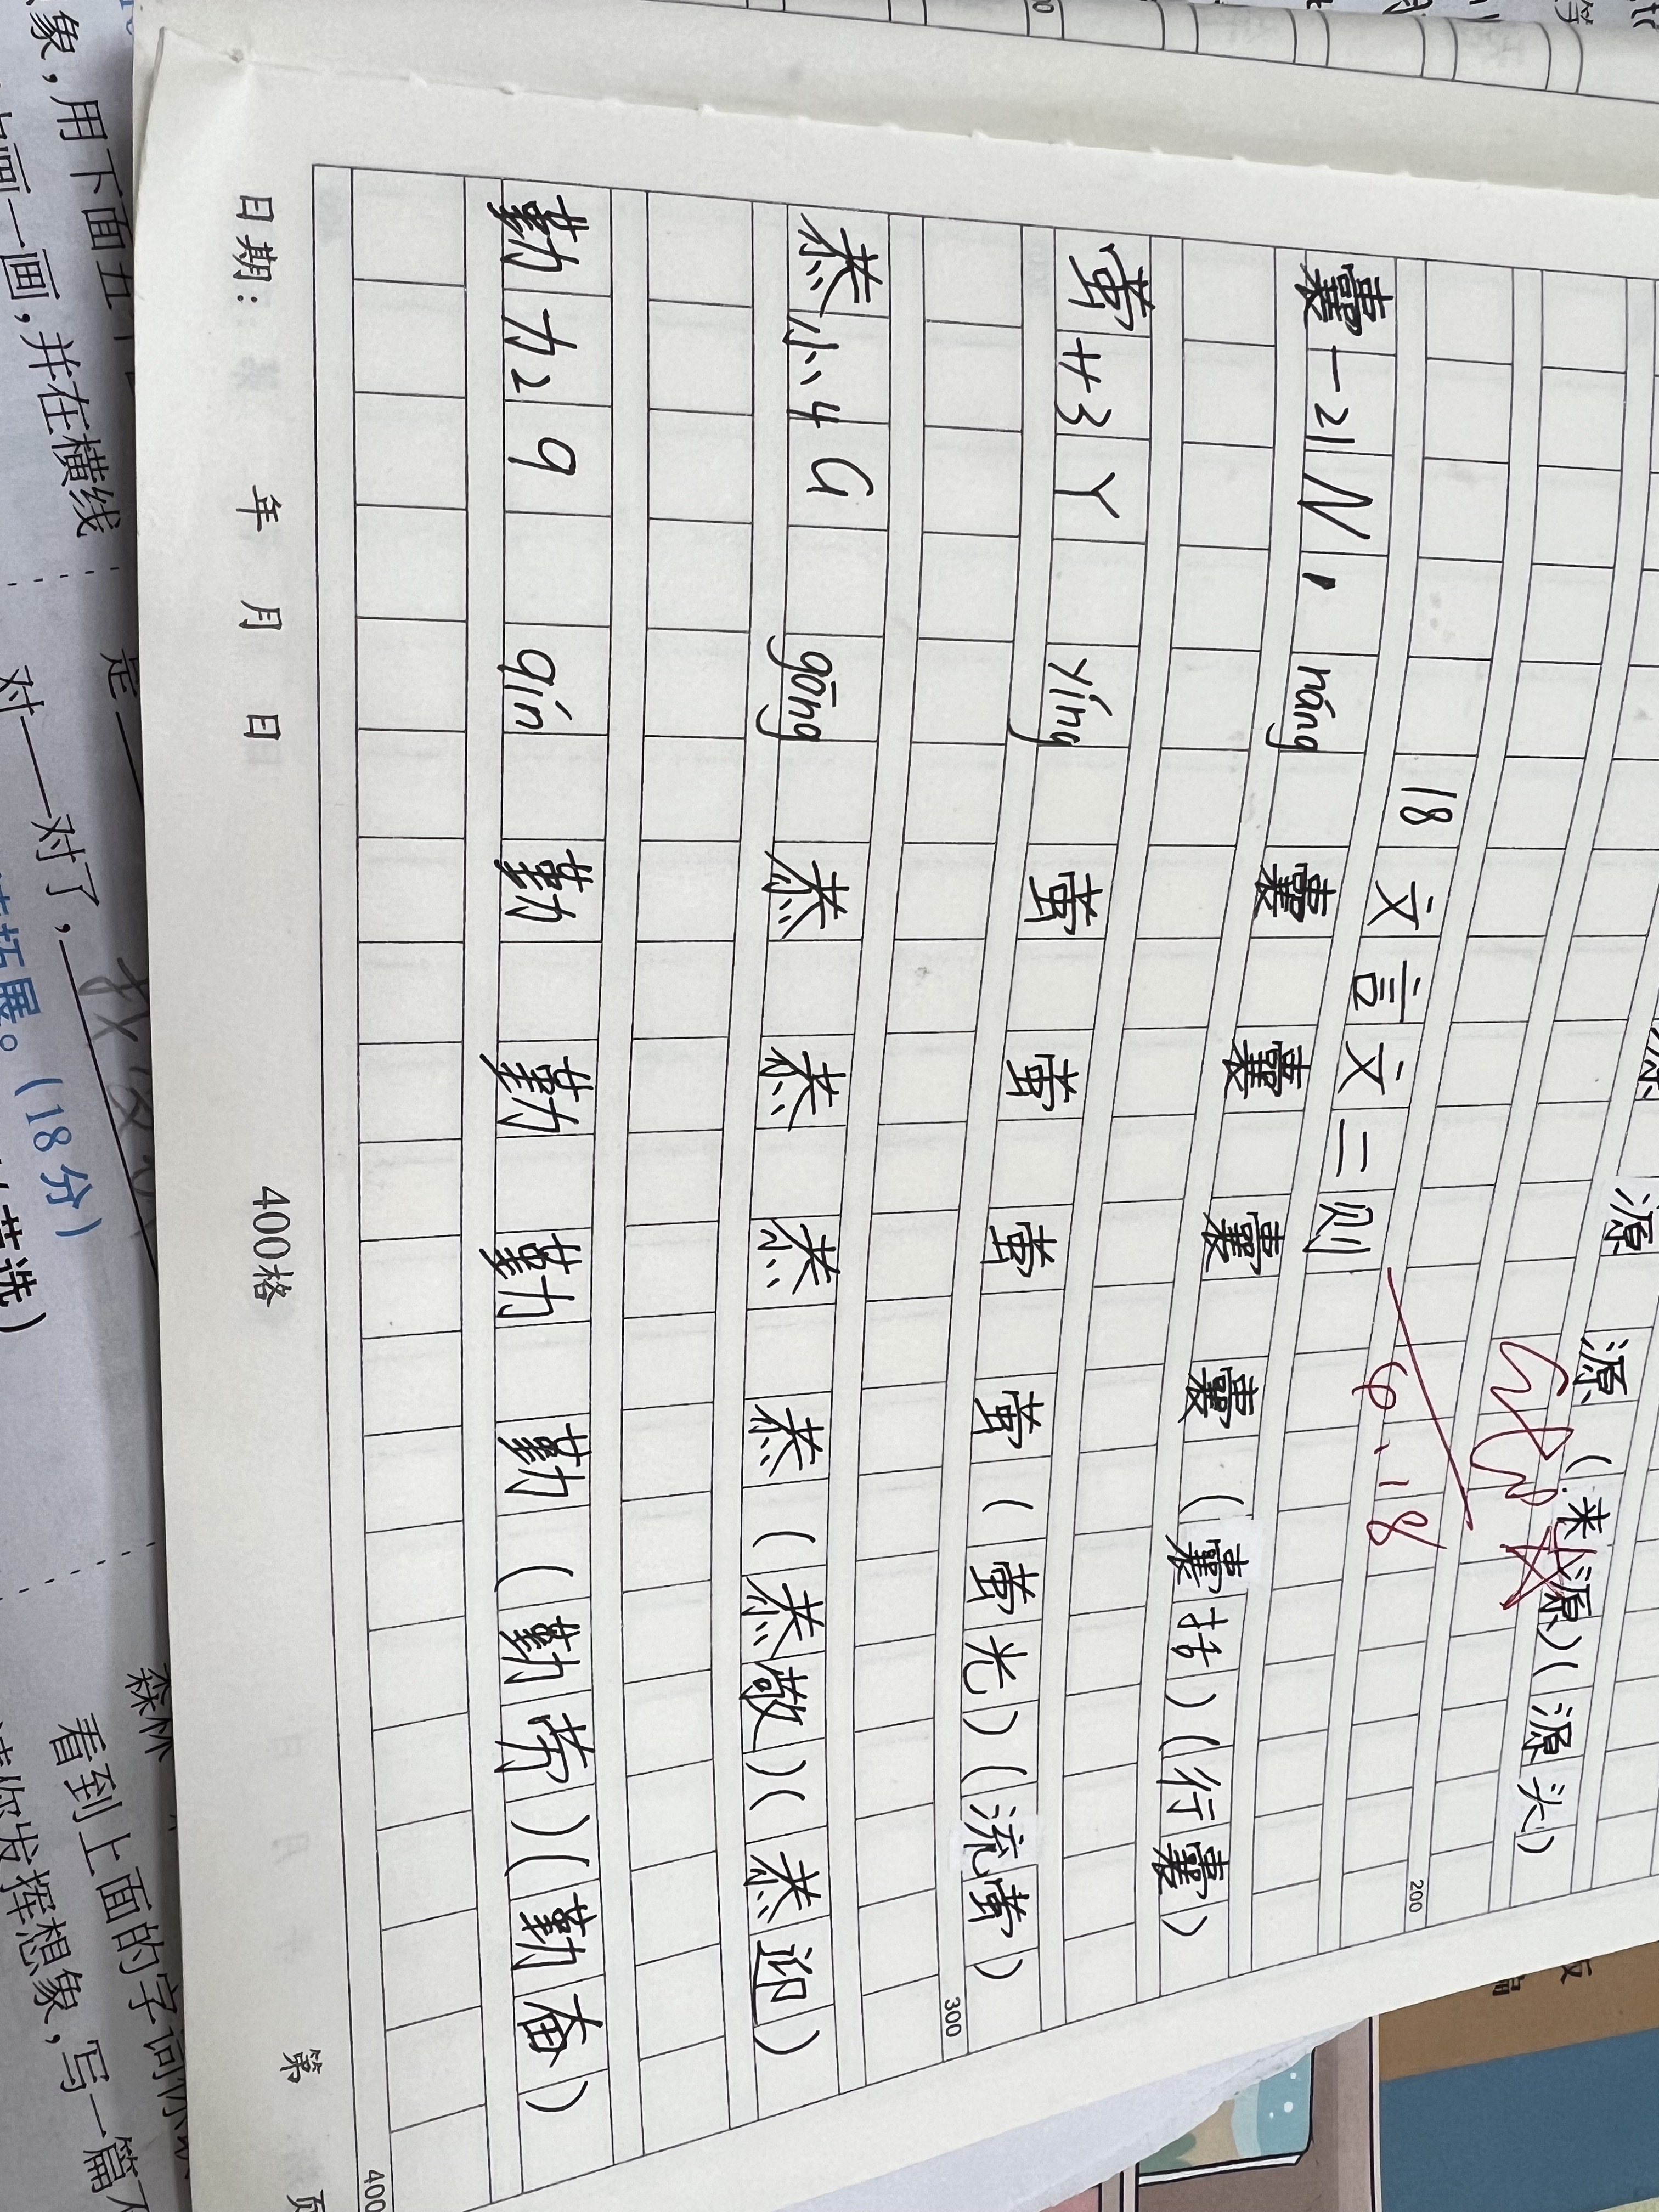 源 源 (来源)(源头)
200
18 文言文二则 6.18
囊 一 21 N náng 囊 囊 囊 囊 (囊括)(行囊)
萤 艹 3 Y yíng 萤 萤 萤 萤 (萤光)(流萤)
300
恭 小 4 G gōng 恭 恭 恭 恭 (恭敬)(恭迎)
勤 力 2 q qín 勤 勤 勤 勤 (勤劳)(勤奋)
400
日期: 年 月 日 400格 第 页
象,用下面五
画一画,并在横线
是
对——对了,
拓展。(18分)
森林
看到上面的字词
你发挥想象,写一篇